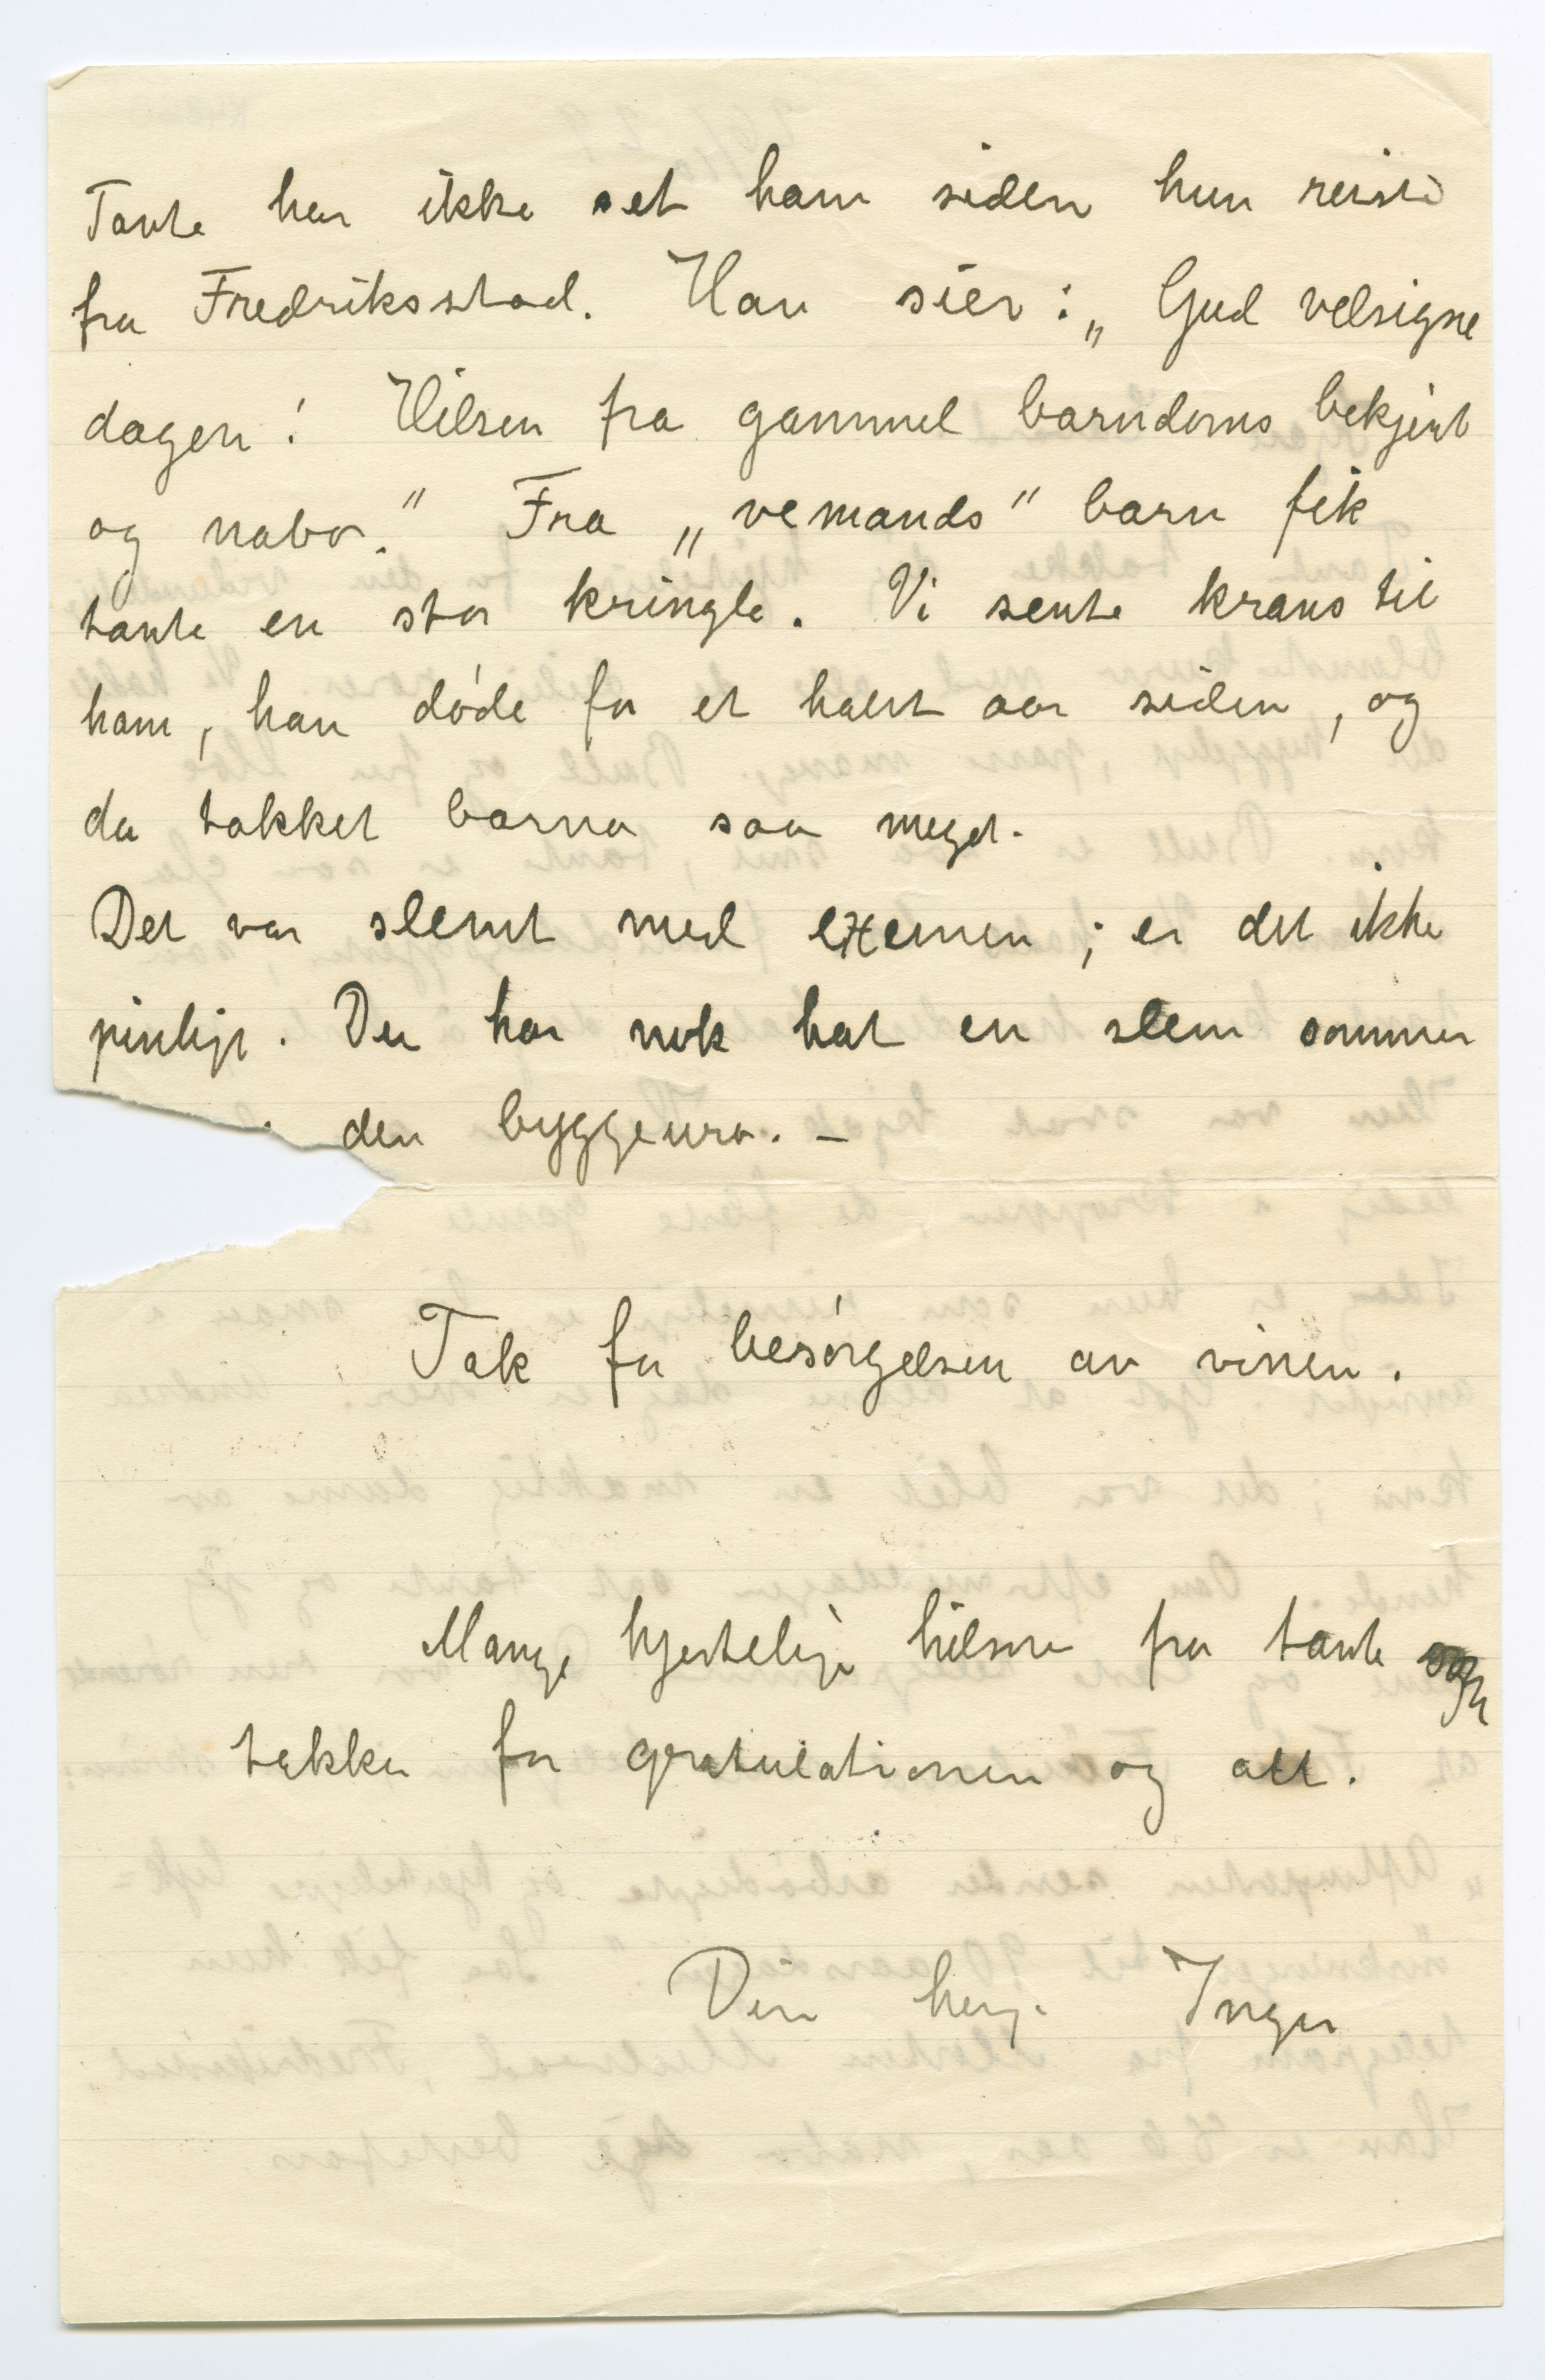 Tante har ikke set ham siden hun reiste
fra Fredriksstad. Han sier: „Gud velsigne
dagen! Hilsen fra gammel barndoms bekjent
og nabo." Fra „vemands" barn fik
tante en stor kringle. Vi sente krans til
ham, han døde for et halvt aar siden, og
da takket barna saa meget.
Det var slemt med exemen; er det ikke
pinligt. Du har nok hat en slem sommer
den byggeuro. –
Tak for besørgelsen av vinen.
Mange hjertelige hilsner fra tante og
takker for gratulationen og alt.
Din heng. Inger